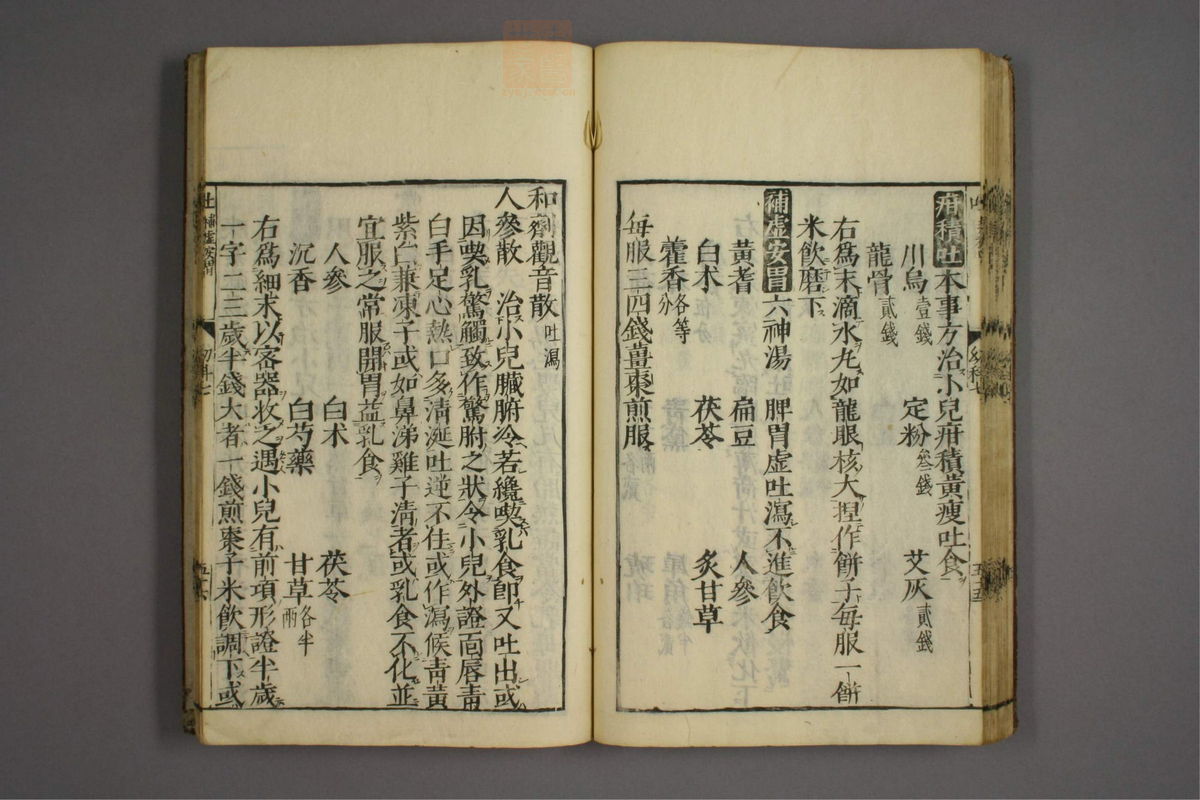 疳積吐 本事方治小兒疳積黃瘦吐食
川烏壹錢 定粉叄錢 艾灰貳錢
龍骨貳錢
右爲末滴水丸如龍眼核大揑作餅子每服一餅
米飲磨下
補虛安胃 六神湯 脾胃虛吐瀉不進飲食
黃耆 扁豆 人參
白朮 茯苓 炙甘草
藿香各等分
每服三四錢薑棗煎服
和劑觀音散 吐瀉
人參散 治小兒臟腑冷若纔喫乳食即又吐出或
因喫乳驚觸致作驚胕之狀令小兒外證面唇靑
白手足心熱口多淸涎吐逆不住或作瀉候靑黃
紫白兼凍子或如鼻涕雞子淸者或乳食不化並
宜服之常服開胃益乳食
人參 白朮 茯苓
沉香 白芍藥 甘草各半兩
右爲細末以密器收之遇小兒有前項形證半歲
一字二三歲半錢大者一錢煎棗子米飲調下或
吐 補虛安胃 幼科七 五十六